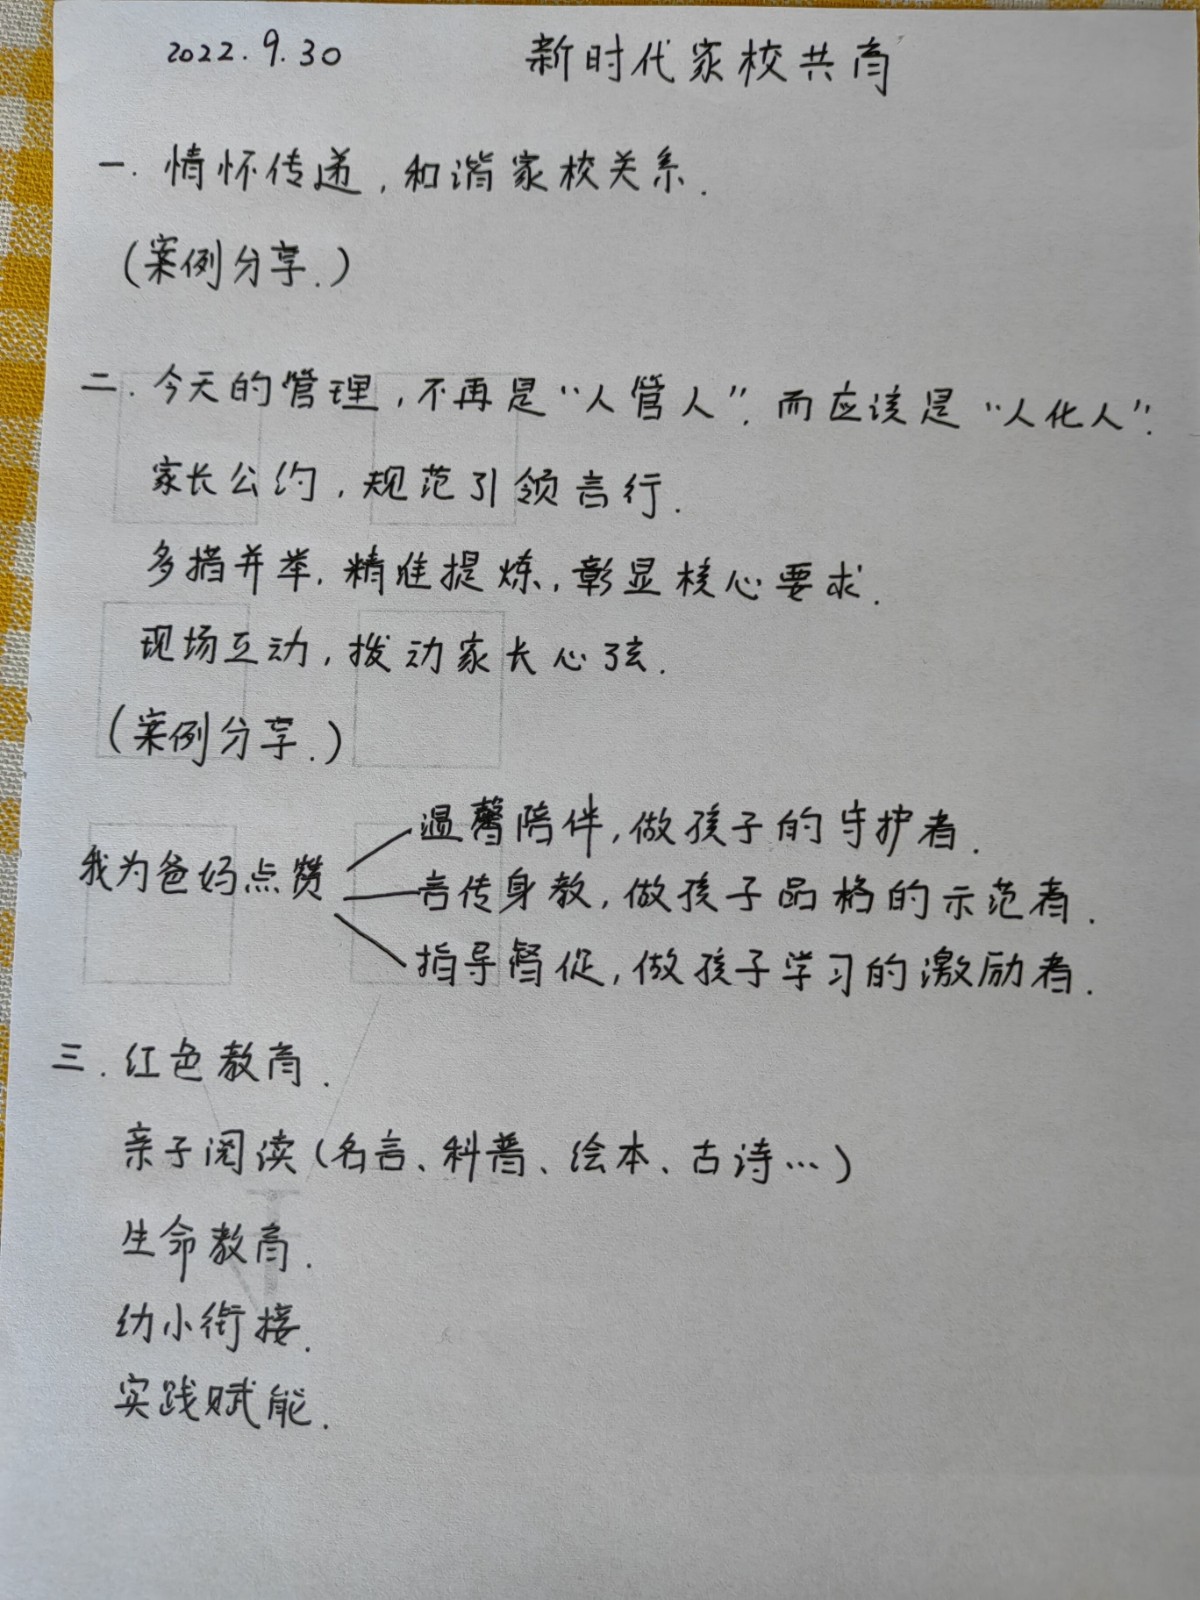 2022.9.30 新时代家校共育
一.情怀传递,和谐家校关系.
(案例分享.)
二.今天的管理,不再是“人管人”.而应该是“人化人”.
家长公约,规范引领言行.
多措并举,精准提炼,彰显核心要求.
现场互动,拨动家长心弦.
(案例分享.)
温馨陪伴,做孩子的守护者.
我为爸妈点赞
言传身教,做孩子品格的示范者.
指导督促,做孩子学习的激励者.
三.红色教育.
亲子阅读(名言、科普、绘本、古诗...)
生命教育.
幼小衔接.
实践赋能.